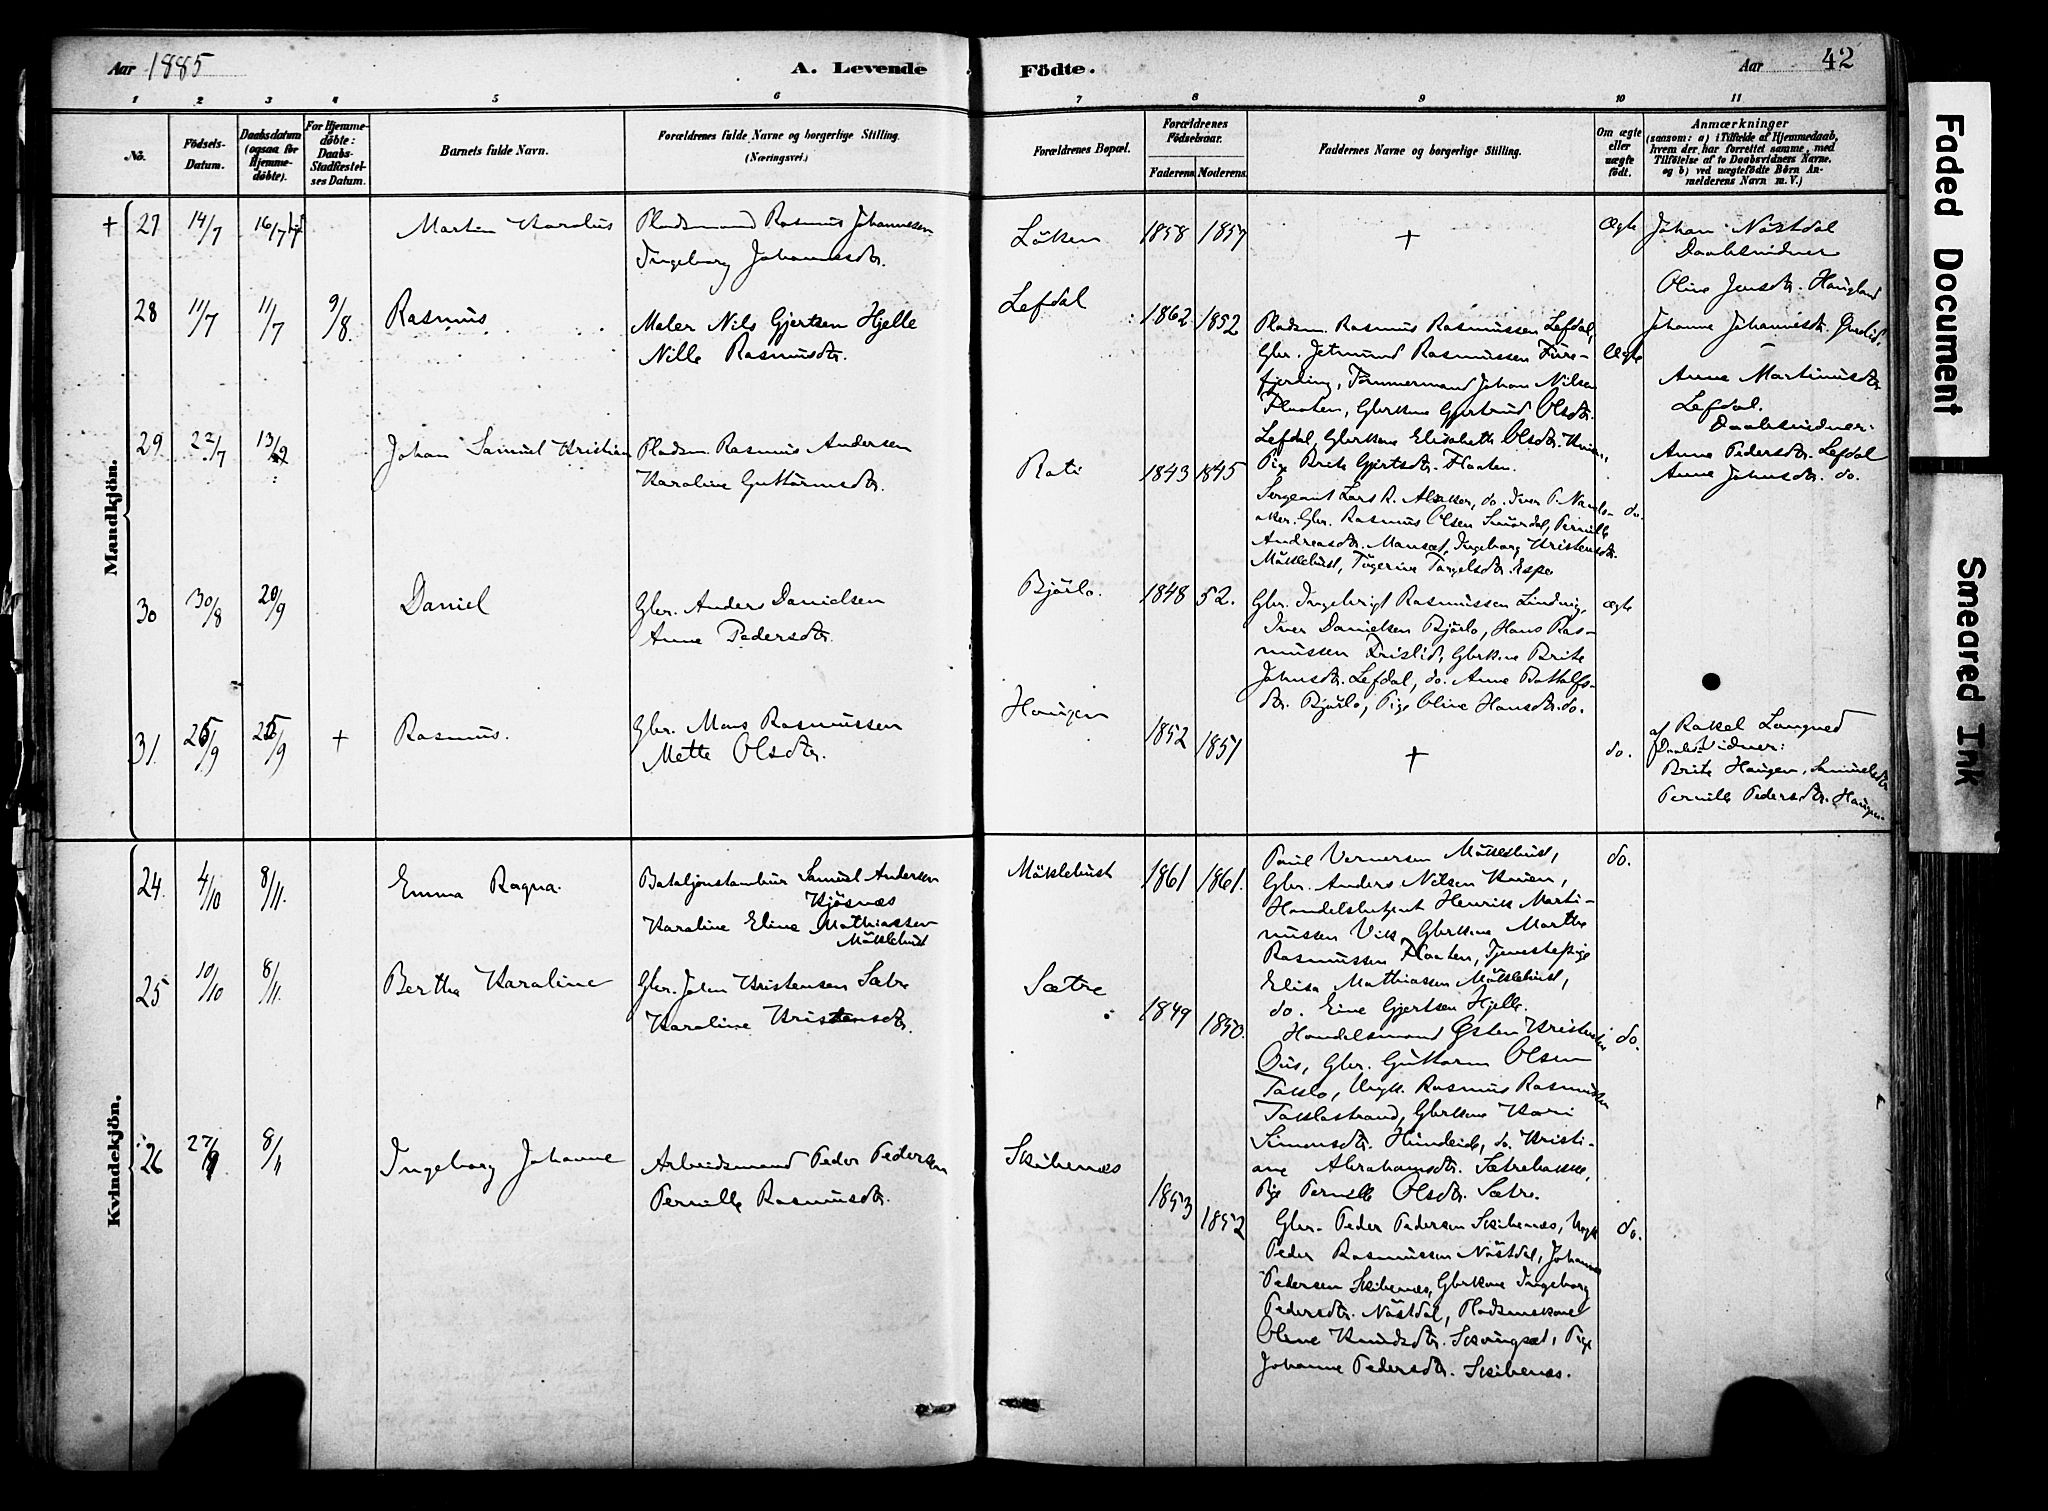 Aar 1885
A. Levende
Födte.
Aar
42
1 2 3 4 5 6 7 8 9 10 11
No.
Födsels-
Datum.
Daabsdatum
(ogsaa for
Hjemme-
döbte).
For Hjemme-
döbte:
Daabs-
Stadfæstel-
ses Datum.
Barnets fulde Navn.
Forældrenes fulde Navne og borgerlige Stilling.
(Næringsvei.)
Forældrenes Bopæl.
Forældrenes
Födselsaar.
Faderens Moderens
Faddernes Navne og borgerlige Stilling.
Om ægte
eller
uægte
födt.
Anmærkninger
(saasom: a) i Tilfælde af Hjemmedaab,
hvem der har forrettet samme, med
Tilföielse af to Daabsvidners Navne,
og b) ved uægtefödte Börn An-
melderens Navn m. V.)
Mandkjön.
+ 27 14/7 16/7
Martin Karolus
Pladsmand Rasmus Johannesen
Ingeborg Johannesdtr.
Löken
1858 1857
+
Ægte
Johan Nöstdal
Daabsvidner
Oline Jensdtr. Haugland
Johanne Johannesdtr.
28 11/7 11/7 9/8.
Rasmus
Maler Nils Gjertsen Hjelle
Nille Rasmusdtr.
Lefdal
1862 1852
Pladsm. Rasmus Rasmussen Lefdal,
Gbr. Jetmund Rasmussen Fure-
fjerding, Tömmermand Johan Nilsen
Flaaten, Gbrkone Gjertrud Olsdtr.
Lefdal, Gbrkone Elisabeth Olsdtr.
Pige Brite Gjertsdtr. Flaaten.
Ægte
Anne Martinusdtr
Lefdal.
Daabsvidner:
Anne Pedersdtr. Lefdal
Anne Johnsdtr. do.
29 22/7 13/9
Johan Samuel Kristian
Pladsm. Rasmus Andersen
Karoline Guttormsdtr.
Roti
1843 1845
Sergeant Lars R. Alsaker, do. Iver P.
aker. Gbr. Rasmus Olsen Smördal, Pernille
Andreasdtr. Mansæt, Ingeborg Kristensdtr.
Möklebust, Targelsdtr. Espe
do.
30 30/8 20/9
Daniel
Gbr. Anders Danielsen
Anne Pedersdtr.
Bjørlo.
1848 52.
Gbr. Ingebrigt Rasmussen Lindvig,
Iver Danielsen Bjørlo, Hans Ras-
mussen Frislid, Gbrkone Brite
Johnsdtr. Lefdal, do. Anne Bottolfs-
dtr. Bjørlo, Pige Oline Hansdtr. do.
ægte
31. 25/9 25/9 +
Rasmus.
Gbr. Mons Rasmussen
Mette Olsdtr.
Haugen
1852 1851
+
do.
af Rakel Langned
Daabsvidner:
Brite Haugen, Samuelsdtr
Pernille Pedersdtr. Haugen
Kvindekjön.
24. 4/10 8/11.
Emma Ragna.
Bataljonstambur Samuel Andersen
Kjösnæs
Karoline Eline Mathiassen
Möklebust
Möklebust
1861 1861.
Paul Vernersen Möklebust,
Gbr. Anders Nilsen
Handelsbetjent Henrik Marti-
nussen Vik, Gbrkone Marthe
Rasmussen Flaaten, Tjenestepige
Elisa Mathiassen Möklebust,
do. Eine Gjertsen Hjelle.
do.
25 10/10 8/11.
Berthe Karoline
Gbr. John Kristensen Sætre
Karoline Kristensdtr.
Sætre
1849 1850.
Handelsmand Østen Kristensen
Ous, Gbr. Guttorm Olsen
Taklo, Ungk. Rasmus Rasmussen
Taklostrand, Gbrkone Kari
Simonsdtr. Hundeide, do. Kristi-
ane Abrahamsdtr. Sætrebakke,
Pige Pernille Olsdtr. Sætre.
do.
26 27/9 8/11
Ingeborg Johanne
Arbeidsmand Peder Pedersen
Pernille Rasmusdtr.
Skibenæs
1853 1852
Gbr. Peder Pedersen Skibenæs, Ungk
Peder Rasmussen Nöstdal, Johannes
Pedersen Skibenæs, Gbrkone Ingeborg
Pedersdtr. Nöstdal, Pladsmkone
Oline Knudsdtr. Skaungsæt, Pige
Johanne Pedersdtr. Skibenæs.
do.
Faded Document
Smeared Ink